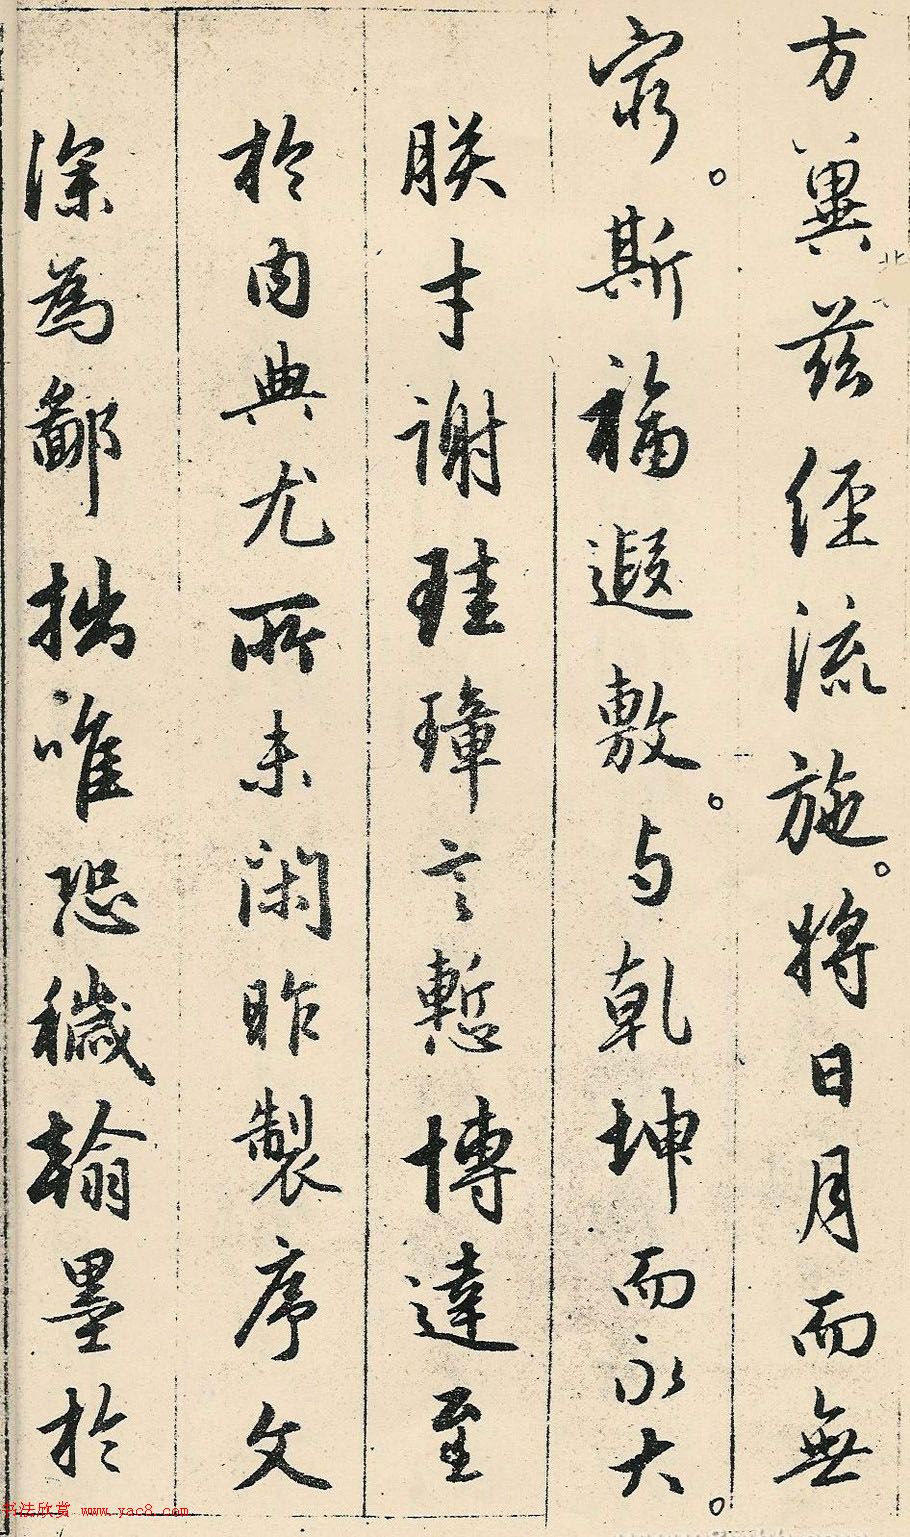 方冀茲經流施。將日月而無
窮。斯福遐敷。与乾坤而永大。
朕才謝珪璋言慙博達至
於內典尤所未閑昨製序文
深為鄙拙唯恐穢翰墨於
北
书法欣赏 www.yac8.com